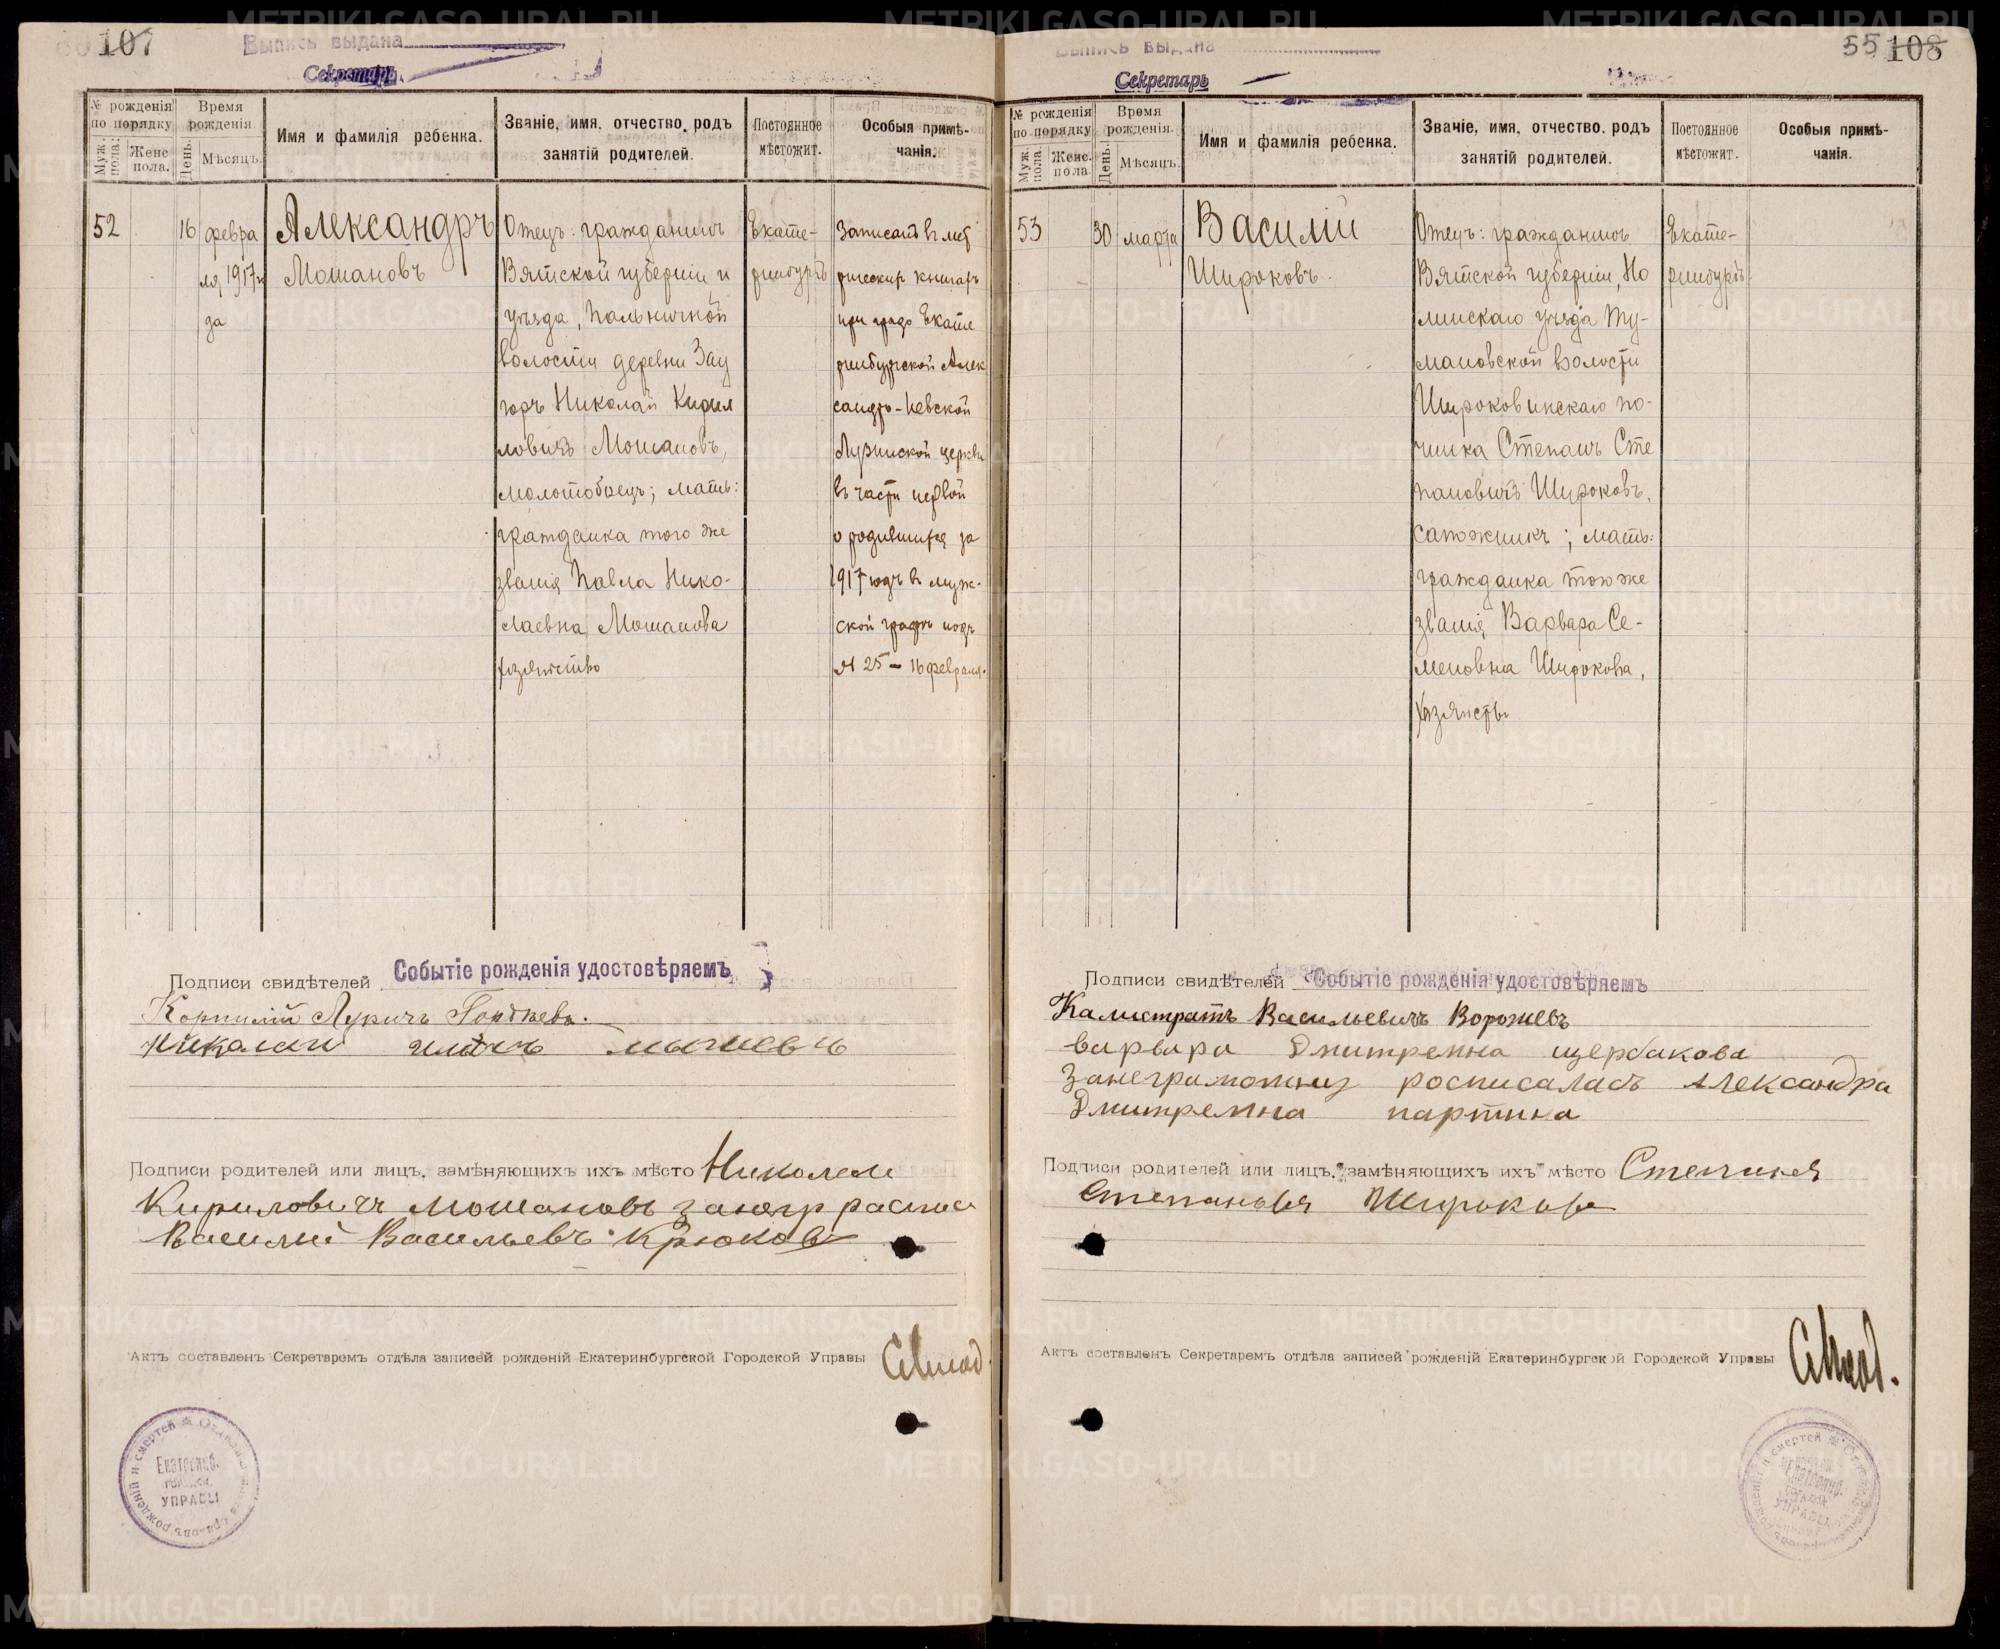 107
Выпись выдана
Секретарь
№ рожденія по порядку
Муж. пола.
Женс пола.
Время рожденія.
День.
Мѣсяцъ.
Имя и фамилія ребенка.
Званіе, имя, отчество, родъ занятій родителей.
Постоянное мѣстожит.
Особыя примѣчанія.
52
16
февра
ля 1917 г
да
Александръ
Мошановъ
Отецъ: гражданинъ
Вятской губерніи и
уѣзда, Пальничной
волости деревни Зау
горъ Николай Кирил
ловичъ Мошановъ,
молотобоецъ; мать:
гражданка того же
званія Павла Нико-
лаевна Мошанова
хозяйство
Екате-
ринбургъ
Записанъ въ мет
рическихъ книгахъ
при градо Екате
ринбургской Алек
сандро-Невской
Лузинской церкви
въ части первой
о родившихся за
1917 годъ въ муж-
ской графѣ подъ
№ 25 - 16 февраля.
Подписи свидѣтелей
Событіе рожденія удостовѣряемъ
Корнилій Лукичъ
Николай
Подписи родителей или лицъ, замѣняющихъ ихъ мѣсто Николай
Кириловичъ Мошановъ за негр распис
Василий Васильевъ Крюков
Актъ составленъ Секретаремъ отдѣла записей рожденій Екатеринбургской Городской Управы
Екатеринб.
городск.
УПРАВЫ
55 108
Выпись выдана
Секретарь
№ рожденія по порядку
Муж. пола.
Женс. пола.
Время рожденія.
День.
Мѣсяцъ.
Имя и фамилія ребенка.
Званіе, имя, отчество, родъ занятій родителей.
Постоянное мѣстожит.
Особыя примѣчанія.
53
30
марта
Василій
Широковъ.
Отецъ: гражданинъ
Вятской губерніи, Но
линскаго уѣзда Ту-
мановской волости
Широковинскаго по-
чинка Степанъ Сте
пановичъ Широковъ,
сапожникъ; мать:
гражданка того же
званія Варвара Се-
меновна Широкова,
хозяйство
Екате-
ринбургъ.
Подписи свидѣтелей
Событіе рожденія удостовѣряемъ
Калистратъ Васильевичъ Ворожевъ
варвара Дмитремна щербакова
Занеграмотную росписаласъ Александра
Дмитремна партина
Подписи родителей или лицъ, замѣняющихъ ихъ мѣсто Степаная
Степановя Широкова
Актъ составленъ Секретаремъ отдѣла записей рожденій Екатеринбургской Городской Управы
Екатеринб.
городск.
УПРАВЫ
METRIKI.GASO-URAL.RU